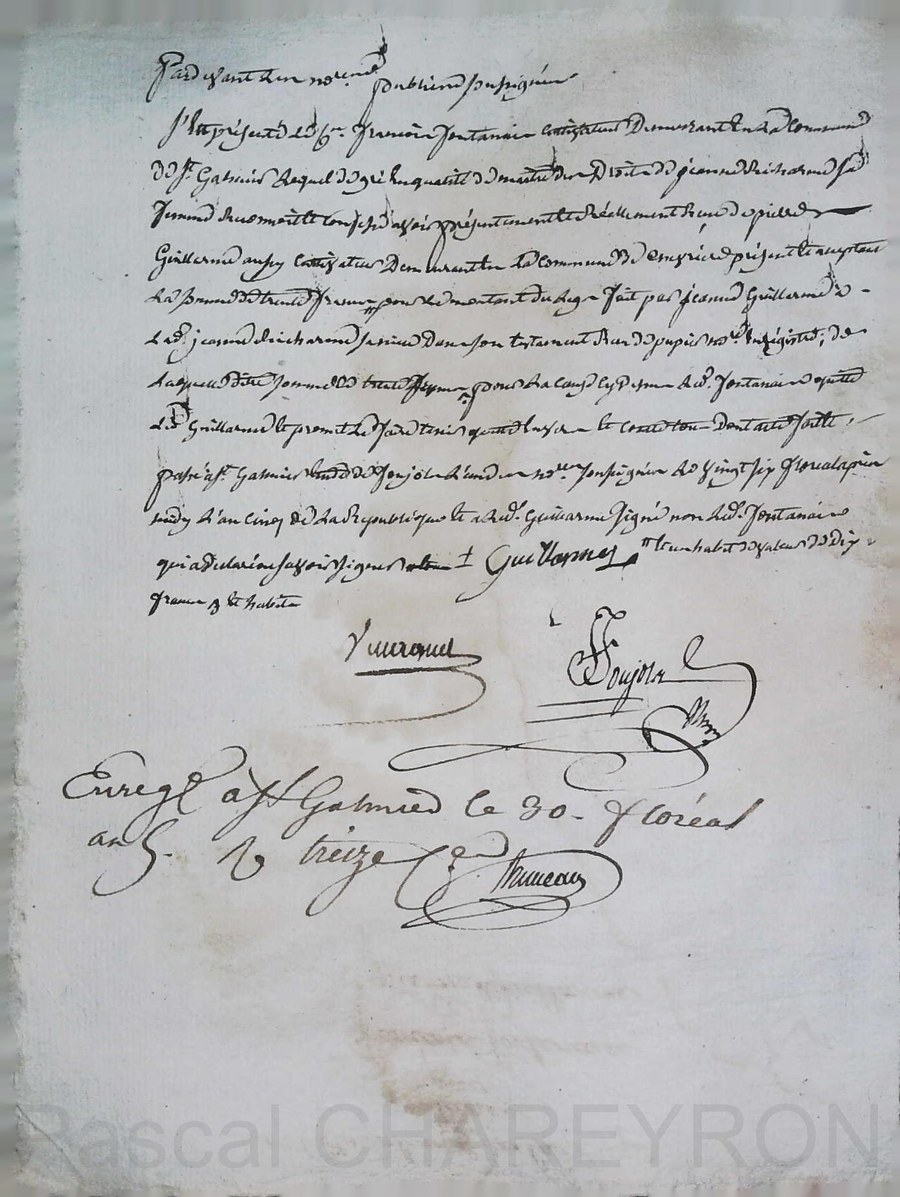 Pardevant les no.res publics soussignés
S'est présenté le c.n françois fontanais cultivateur demeurant en la commune
de St Galmier lequel de gré en qualité de maitre des droits de jeanne richarme sa
femme promet et confesse avoir présentement et réellement reçu de pierre
Guillarme aussy cultivateur demeurant en la commune de présent et acceptant
la somme de trente francs pour le montant du legs fait par jeanne Guillarme a
lad. jeanne richarme sa niece dans son testament reçu depupis no.re enregistré, de
laquelle dite somme de trente francs pour la cause cy dessus led. fontanais quitte
led. Guillarme et promet le faire tenir quitte envers et contre tous dont acte fait et
passé a St Galmier étude de Jonjole l'un des no.res soussignés le vingt six floréal après
midy l'an cinq de la république et a led. Guillarme signé non led. fontanais
qui a déclaré ne savoir signer Guillarmes et un habit de valeur de dix
francs et habits
Jonjole
Enregé à St Galmier le 30. floréal
an 5. R treize
Pascal CHAREYRON